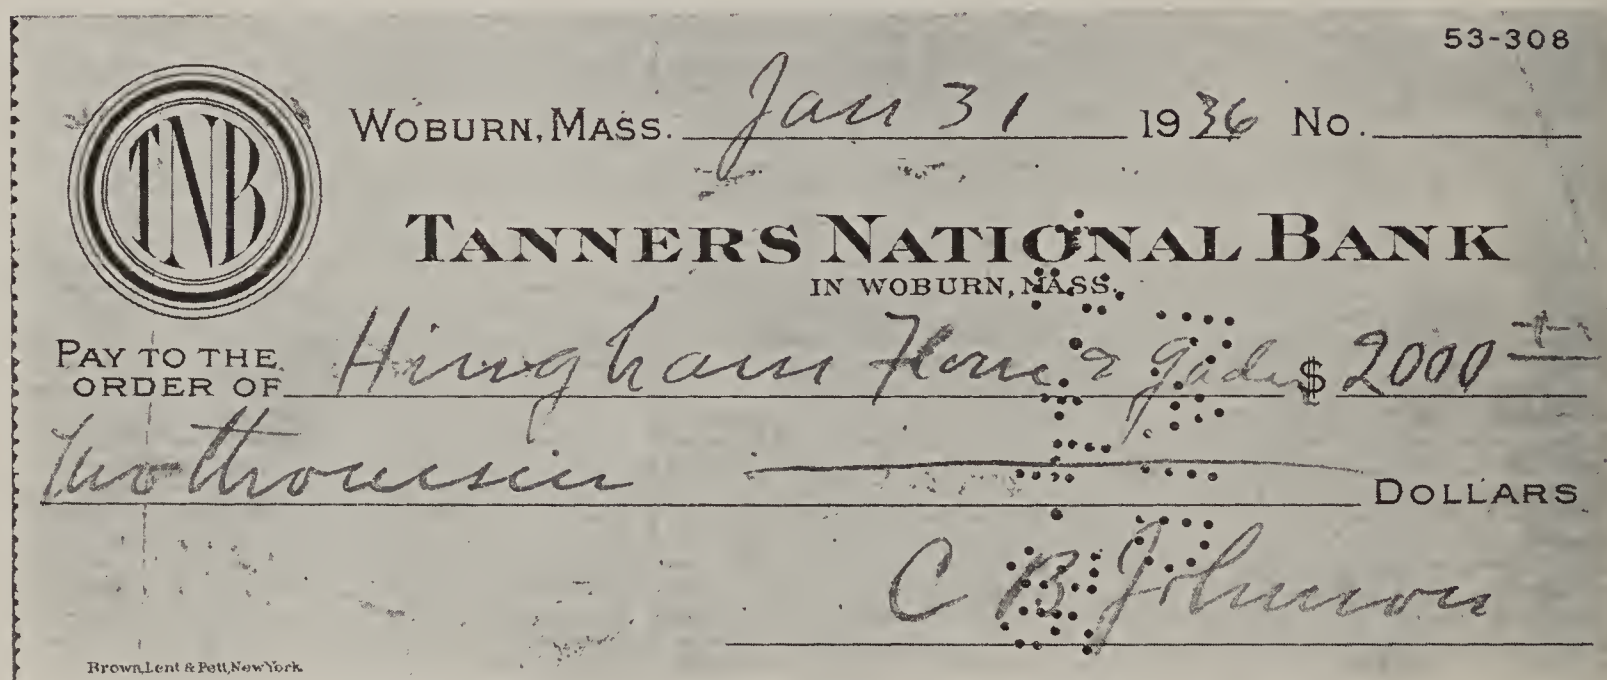 53-308
TNB
WOBURN, MASS. Jan 31 1936 No.
TANNERS NATIONAL BANK
IN WOBURN, MASS.
PAY TO THE ORDER OF Hingham & $ 2000
Two DOLLARS
C B Johnson
Brown, Lent & Pett, New York